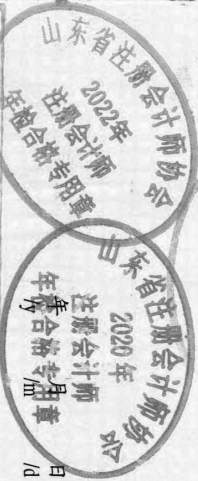 山东省注册会计师协会
2022年
注册会计师
年检合格专用章
山东省注册会计师协会
2020年
注册会计师
年检合格专用章
年 月 日
/y /m /d